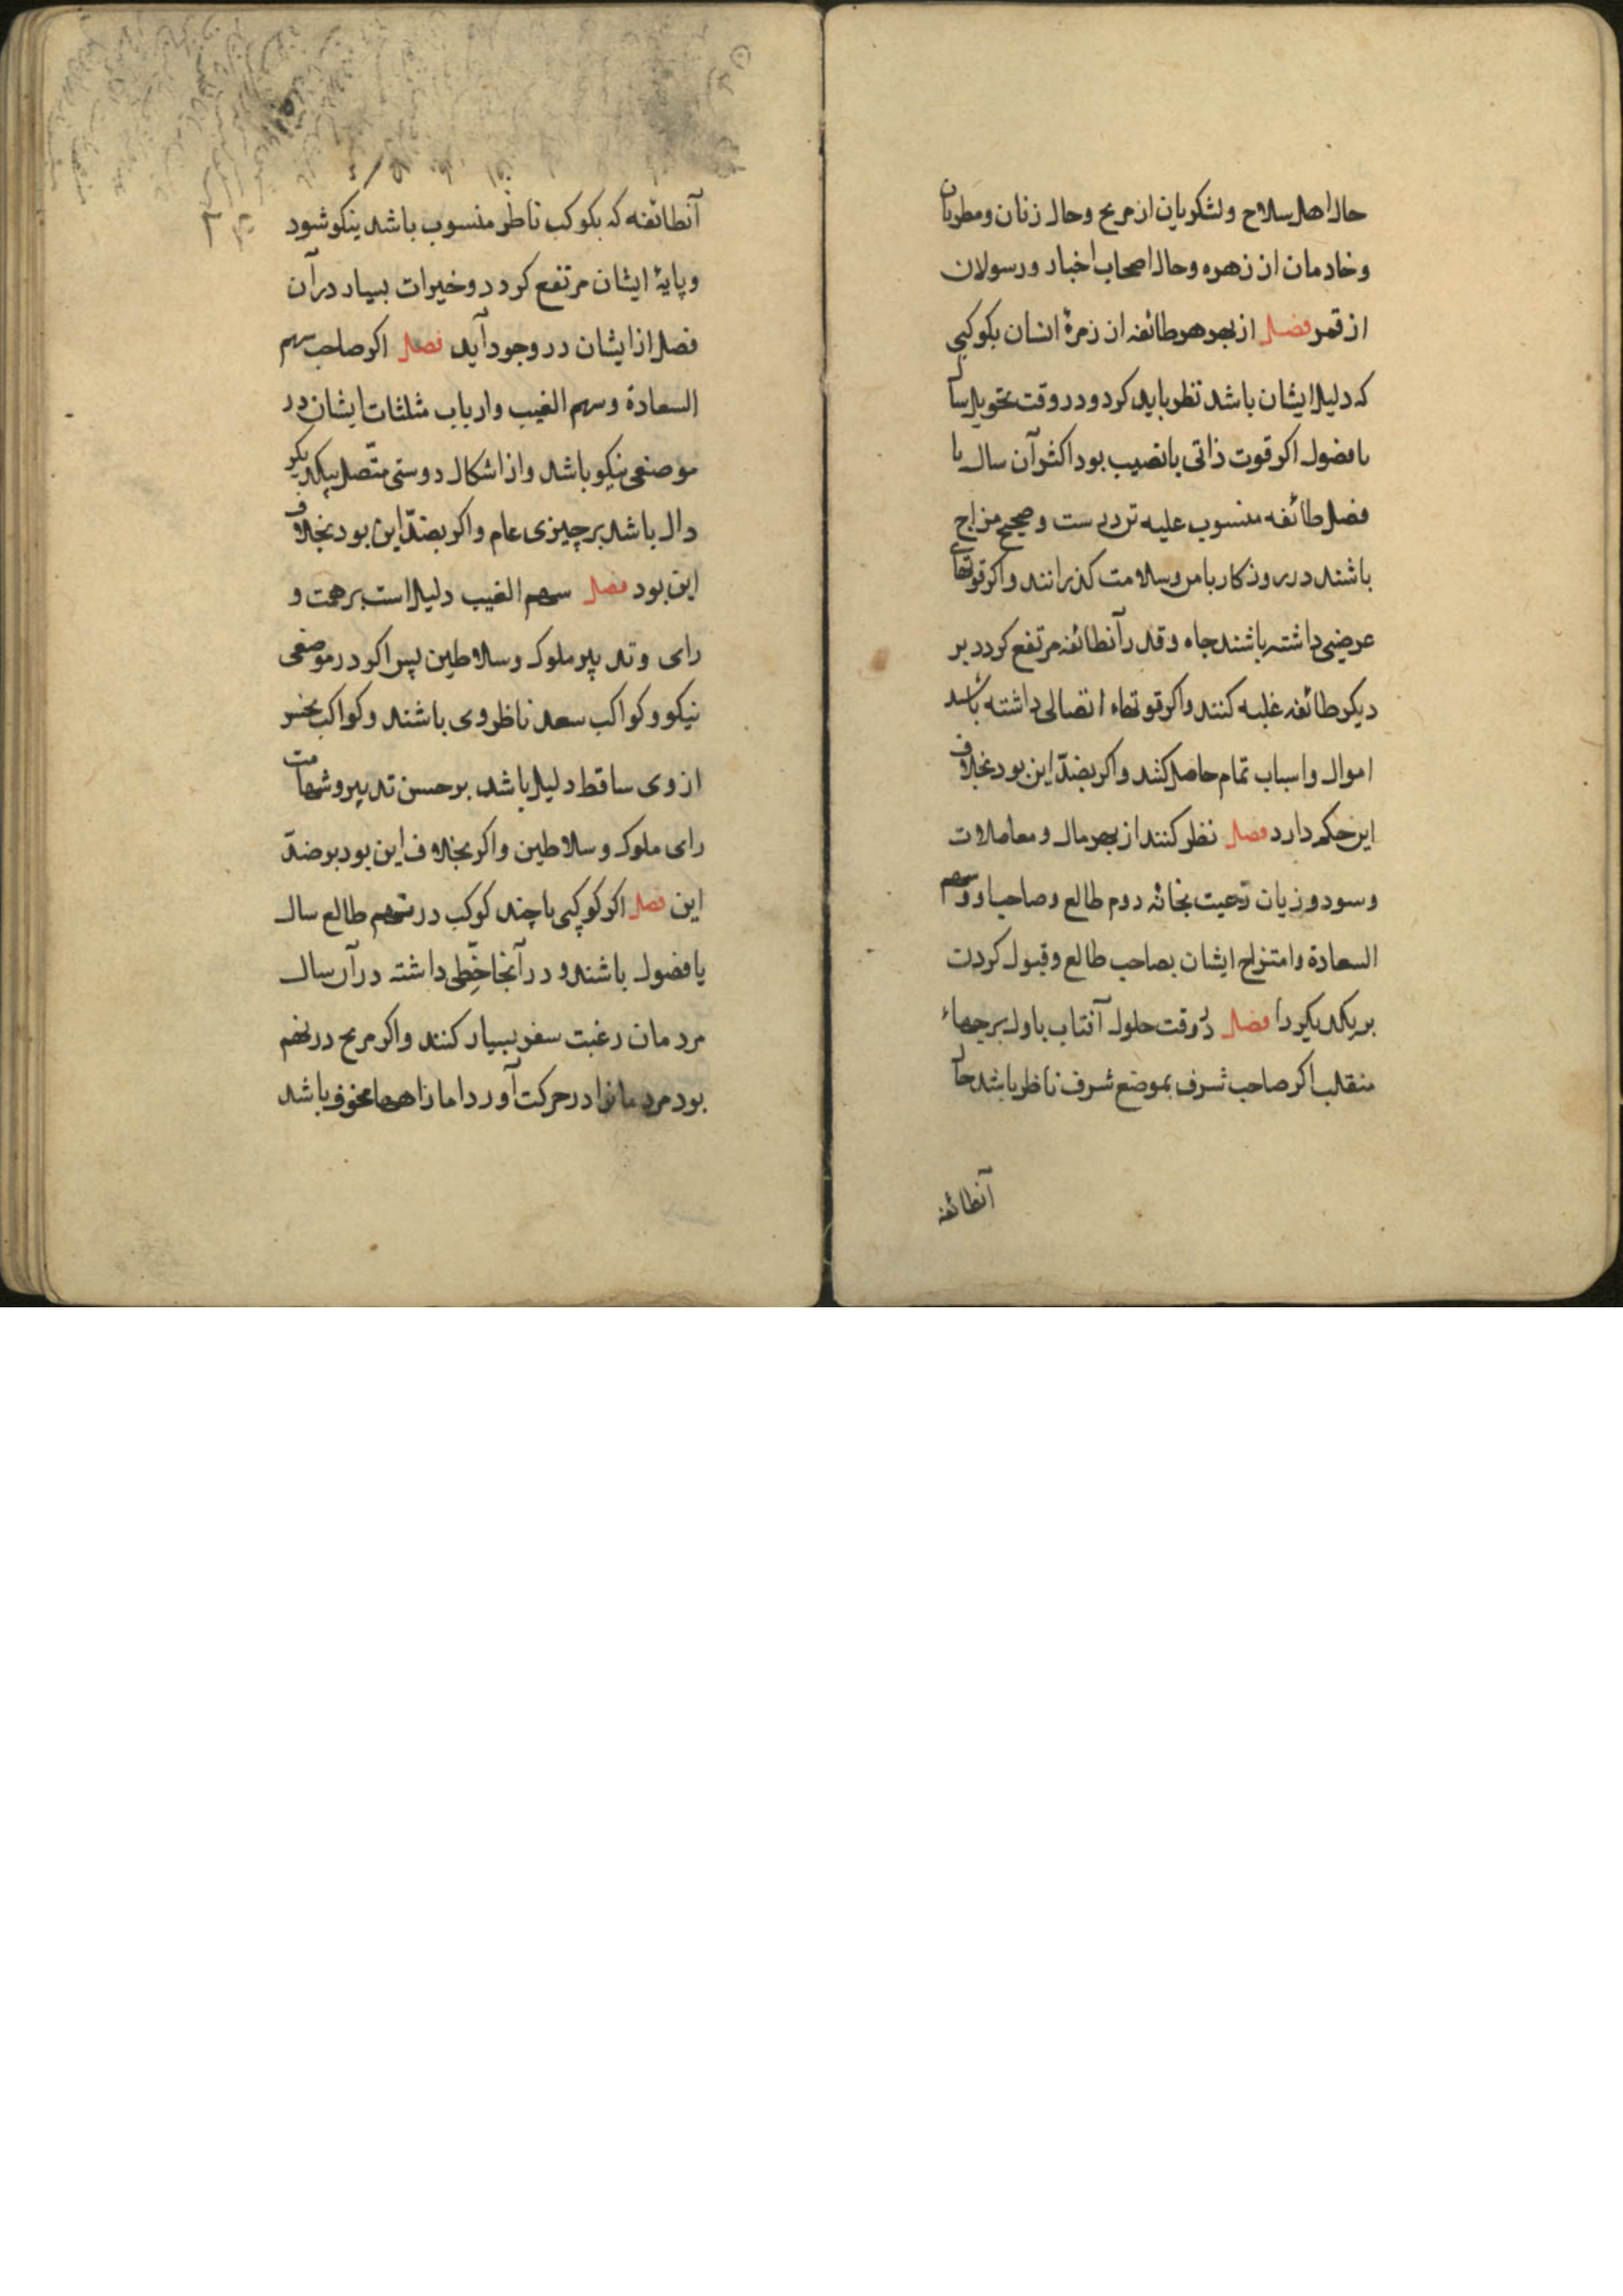 حال اهل سلاح ولشکریان از مریخ وحال زنان ومطربان
وخادمان از زهره وحال اصحاب اخبار ورسولان
از قمر فصل از بهر هر طائفه از زمرهٔ انسان بکوکبی
که دلیل ایشان باشد نظر باید کرد ودر وقت تحویل سال
یا فصول اکر قوت ذاتی یا نصیب بود اکثر آن سال یا
فصل طائفه منسوب علیه تن درست و صحیح مزاج
باشند در روزکار بامن وسلامت کذرانند واکر قوتهای
عرضی داشته باشند جاه وقدر آنطائفه مرتفع کردد بر
دیکر طائفه غلبه کنند واکر قوتهاء اتصالی داشته باشد
اموال واسباب تمام حاصل کنند واکر بضدّ این بود بخلاف
این حکم دارد فصل نظر کنند از بهر مال ومعاملات
وسود وزیان رعیت بخانه دوم طالع وصاحب او وسهم
السعادة وامتزاج ایشان بصاحب طالع وقبول کردن
بر یکدیکر را فصل در وقت حلول آفتاب باول برجهاء
منقلب اکر صاحب شرف بموضع شرف ناظر باشد حال
آنطائفه
آنطائفه که بکوکب ناظر منسوب باشد نیکو شود
وپایهٔ ایشان مرتفع کردد وخیرات بسیار در آن
فصل از ایشان در وجود آید فصل اکر صاحب سهم
السعادة وسهم الغیب وارباب مثلثات ایشان در
موضعی نیکو باشد واز اشکال دوستی متّصل بیکدیکر
دال باشد بر چیزی عام واکر بضدّ این بود بخلاف
این بود فصل سهم الغیب دلیل است بر همت و
رای وتدبیر ملوک وسلاطین پس اکر در موضعی
نیکو وکواکب سعد ناظر وی باشند وکواکب نحس
از وی ساقط دلیل باشد بر حسن تدبیر وشهامت
رای ملوک وسلاطین واکر بخلاف این بود بر ضدّ
این فصل اکر کوکبی یا چند کوکب در نهم طالع سال
یا فصول باشند ودر آنجا حظّی داشته در آن سال
مردمان رغبت سفر بسیار کنند واکر مریخ در نهم
بود مردمانرا در حرکت آورد اما راهها مخوف باشد